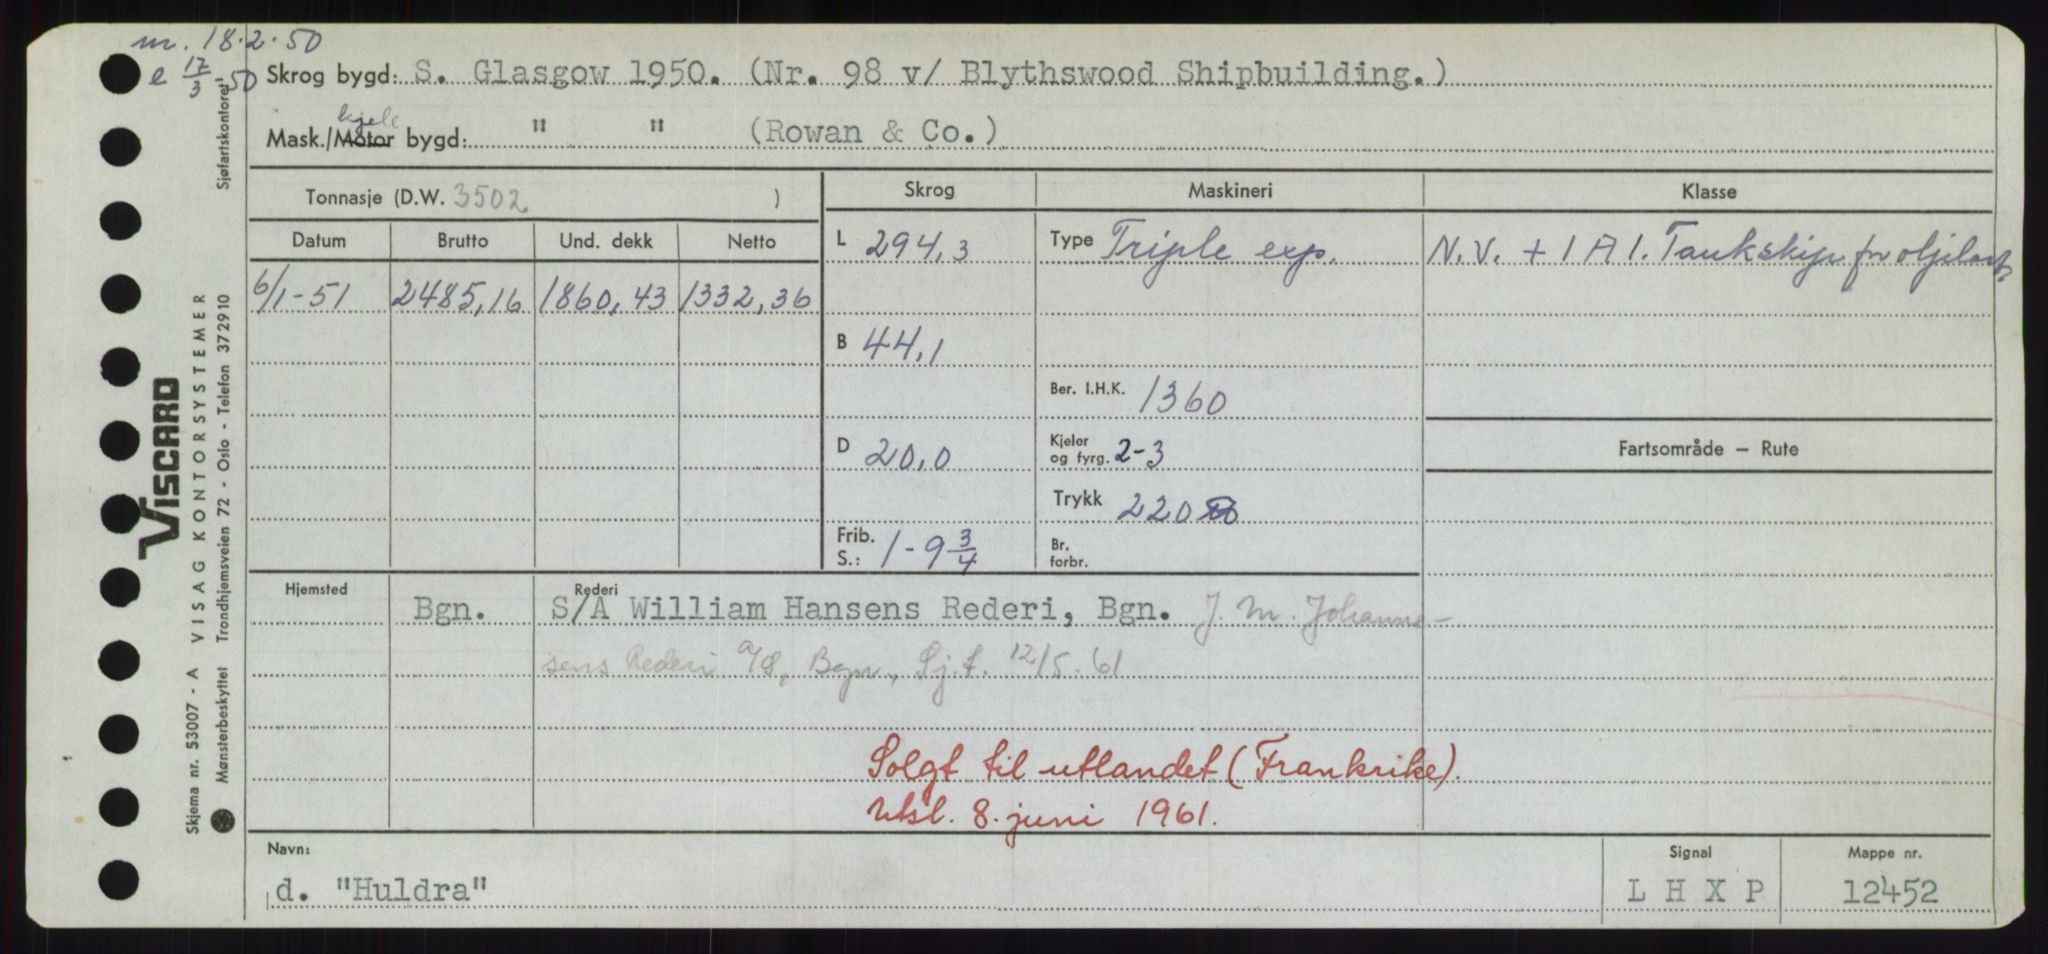 m. 18.2.50
e 17/3-50
Skrog bygd: S. Glasgow 1950. (Nr. 98 v/ Blythswood Shipbuilding.)
kjele
Mask./Motor bygd: " " (Rowan & Co.)
Tonnasje (D.W. 3502 )
Skrog Maskineri Klasse
Datum Brutto Und. dekk Netto
L 294,3 Type Triple exp. N.V. + 1 A 1. Tankskip for oljelast
6/1-51 2485,16 1860,43 1332,36
B 44,1
Ber. I.H.K. 1360
D 20,0 Kjeler og fyrg. 2-3 Fartsområde – Rute
Trykk 220
Frib. S.: 1-9 3/4 Br. forbr.
Hjemsted Rederi
Bgn. S/A William Hansens Rederi, Bgn. J. M. Johanne-
sens Rederi A/S, Bgn, Sj.f. 12/5.61
Solgt til utlandet (Frankrike).
Utsl. 8. juni 1961.
Navn: Signal Mappe nr.
d. "Huldra" L H X P 12452
VISCARD
Skjema nr. 53007 - A VISAG KONTORSYSTEMER
Mønsterbeskyttet Trondhjemsveien 72 - Oslo - Telefon 372910 Sjøfartskontoret